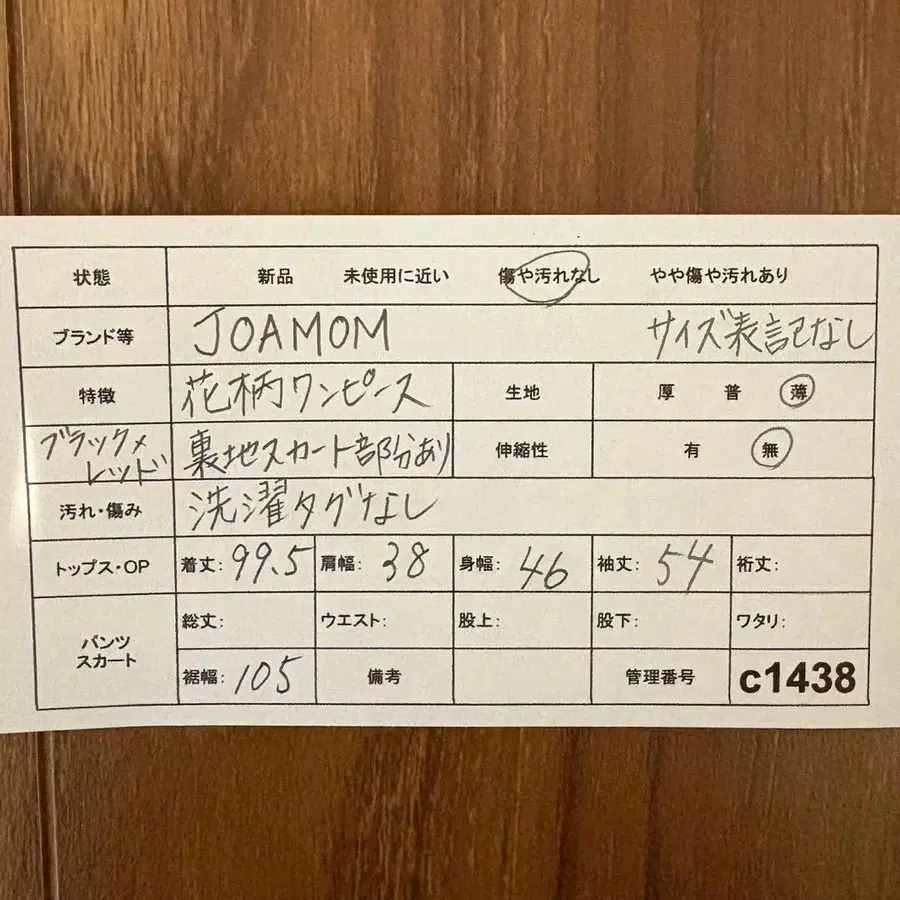 状態 新品 未使用に近い 傷や汚れなし やや傷や汚れあり
ブランド等 JOAMOM サイズ表記なし
特徴 花柄ワンピース 生地 厚 普 薄
ブラック×
レッド 裏地スカート部分あり 伸縮性 有 無
汚れ・傷み 洗濯タグなし
トップス・OP 着丈: 99.5 肩幅: 38 身幅: 46 袖丈: 54 裄丈:
パンツ
スカート 総丈: ウエスト: 股上: 股下: ワタリ:
裾幅: 105 備考 管理番号 c1438